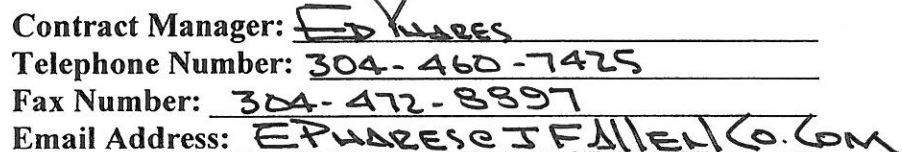 Contract Manager: ED PHARES
Telephone Number: 304-460-7425
Fax Number: 304-472-8897
Email Address: EPHARES@JFAllenCo.Com